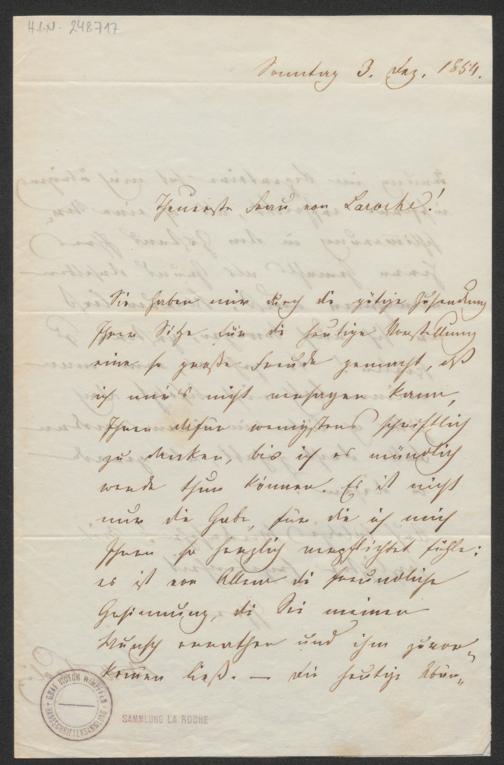 H.I.N. 248717
Sonntag 3. Dez. 1854.
Theuerste Frau von Laroche!
Sie haben mir durch die gütige Zusendung
Ihrer Sitze für die heutige Vorstellung
eine so große Freude gemacht, daß
ich mir's nicht versagen kann,
Ihnen dafür wenigstens schriftlich
zu danken, bis ich es mündlich
werde thun können. Es ist nicht
nur die Gabe, für die ich mich
Ihnen so herzlich verpflichtet fühle:
es ist vor Allem die freundliche
Gesinnung, die Sie meinen
Wunsch errathen und ihm zuvor-
kommen ließ. — Die heutige
GRAF VICTOR WIMPFFEN
HANDSCHRIFTENSAMMLUNG
SAMMLUNG LA ROCHE